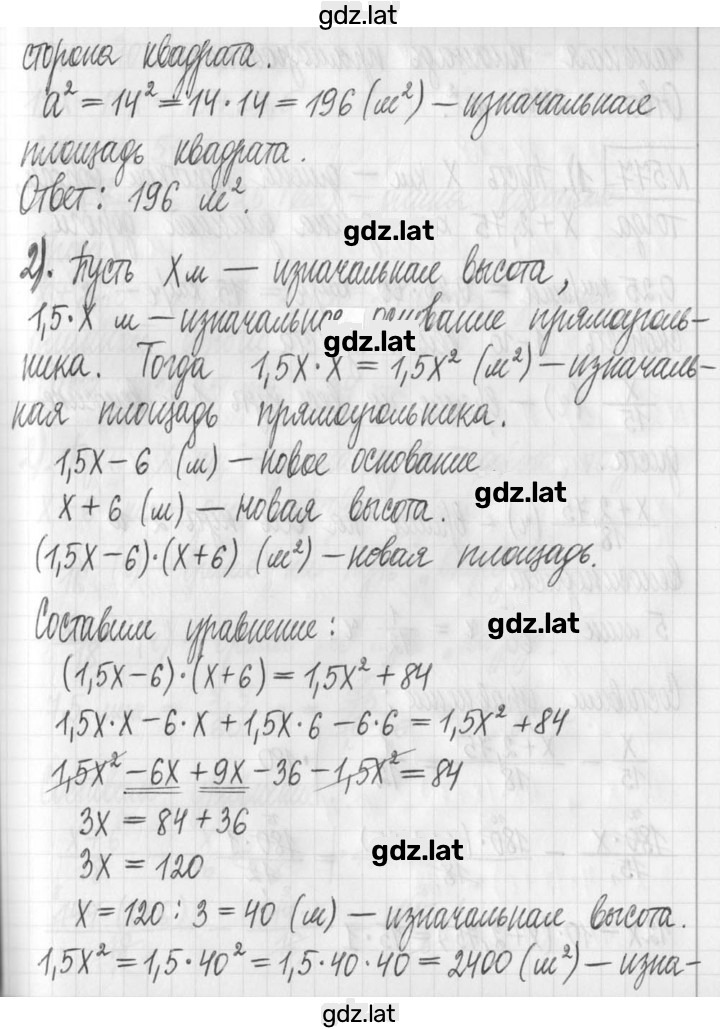 gdz.lat
сторона квадрата.
a² = 14² = 14·14 = 196 (м²) – изначальная
площадь квадрата.
Ответ: 196 м².
gdz.lat
2). Пусть X м – изначальная высота,
1,5·X м – изначально основание прямоуголь-
gdz.lat
ника. Тогда 1,5X·X = 1,5X² (м²) – изначаль-
ная площадь прямоугольника.
1,5X – 6 (м) – новое основание
gdz.lat
X + 6 (м) – новая высота.
(1,5X – 6)·(X + 6) (м²) – новая площадь.
Составим уравнение:
gdz.lat
(1,5X – 6)·(X + 6) = 1,5X² + 84
1,5X·X – 6·X + 1,5X·6 – 6·6 = 1,5X² + 84
1,5X² – 6X + 9X – 36 – 1,5X² = 84
3X = 84 + 36
3X = 120
gdz.lat
X = 120 : 3 = 40 (м) – изначальная высота.
1,5X² = 1,5·40² = 1,5·40·40 = 2400 (м²) – изна-
gdz.lat